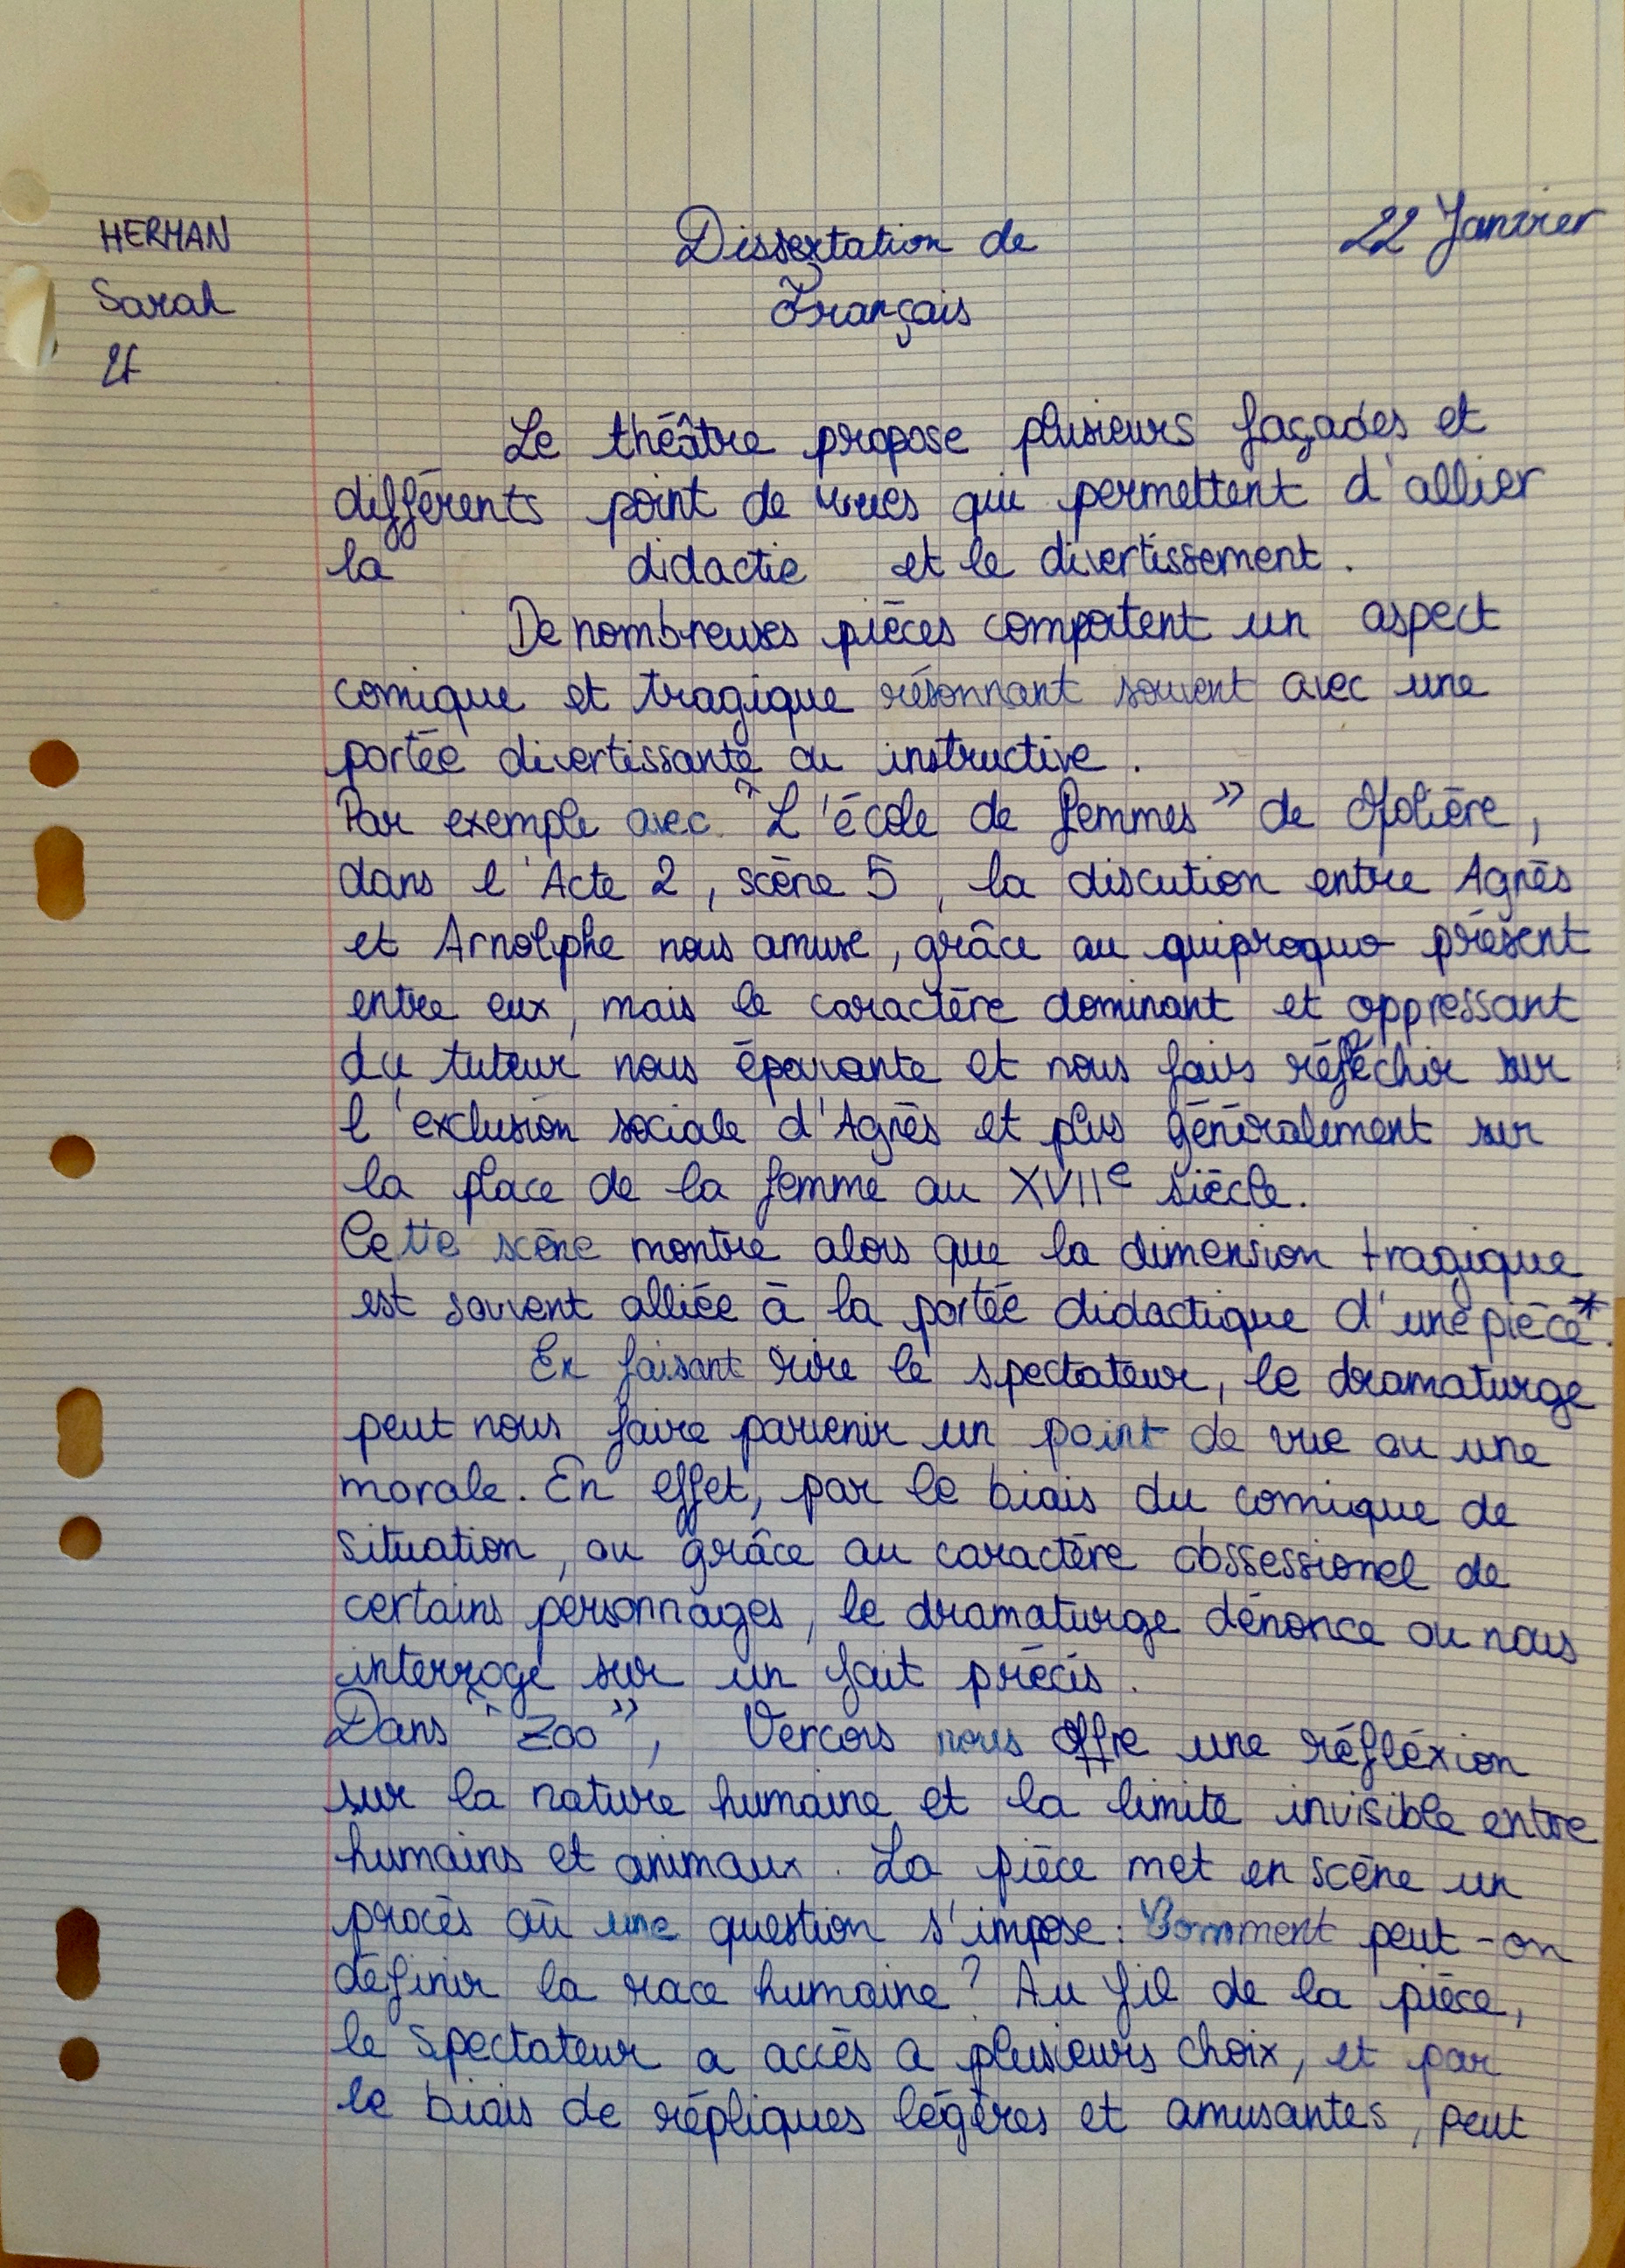 HERMAN
Sarah
2f
Dissertation de
Français
22 Janvier
Le théâtre propose plusieurs façades et
différents point de vues qui permettent d'allier
la didactie et le divertissement.
De nombreuses pièces comportent un aspect
comique et tragique résonnant souvent avec une
portée divertissante ou instructive.
Par exemple avec "L'école de femmes" de Molière,
dans l'Acte 2, scène 5, la discution entre Agnès
et Arnolphe nous amuse, grâce au quiproquo présent
entre eux, mais le caractère dominant et oppressant
du tuteur nous épouvante et nous fais réflechir sur
l'exclusion sociale d'Agnès et plus généralement sur
la place de la femme au XVIIe siècle.
Cette scène montre alors que la dimension tragique
est souvent alliée à la portée didactique d'une pièce*.
En faisant rire le spectateur, le dramaturge
peut nous faire parvenir un point de vue ou une
morale. En effet, par le biais du comique de
situation, ou grâce au caractère obssessionel de
certains personnages, le dramaturge dénonce ou nous
interroge sur un fait précis.
Dans "Zoo", Vercors nous offre une réfléxion
sur la nature humaine et la limite invisible entre
humains et animaux. La pièce met en scène un
procès où une question s'impose: Comment peut-on
définir la race humaine? Au fil de la pièce,
le spectateur a accès a plusieurs choix, et par
le biais de répliques légères et amusantes, peut